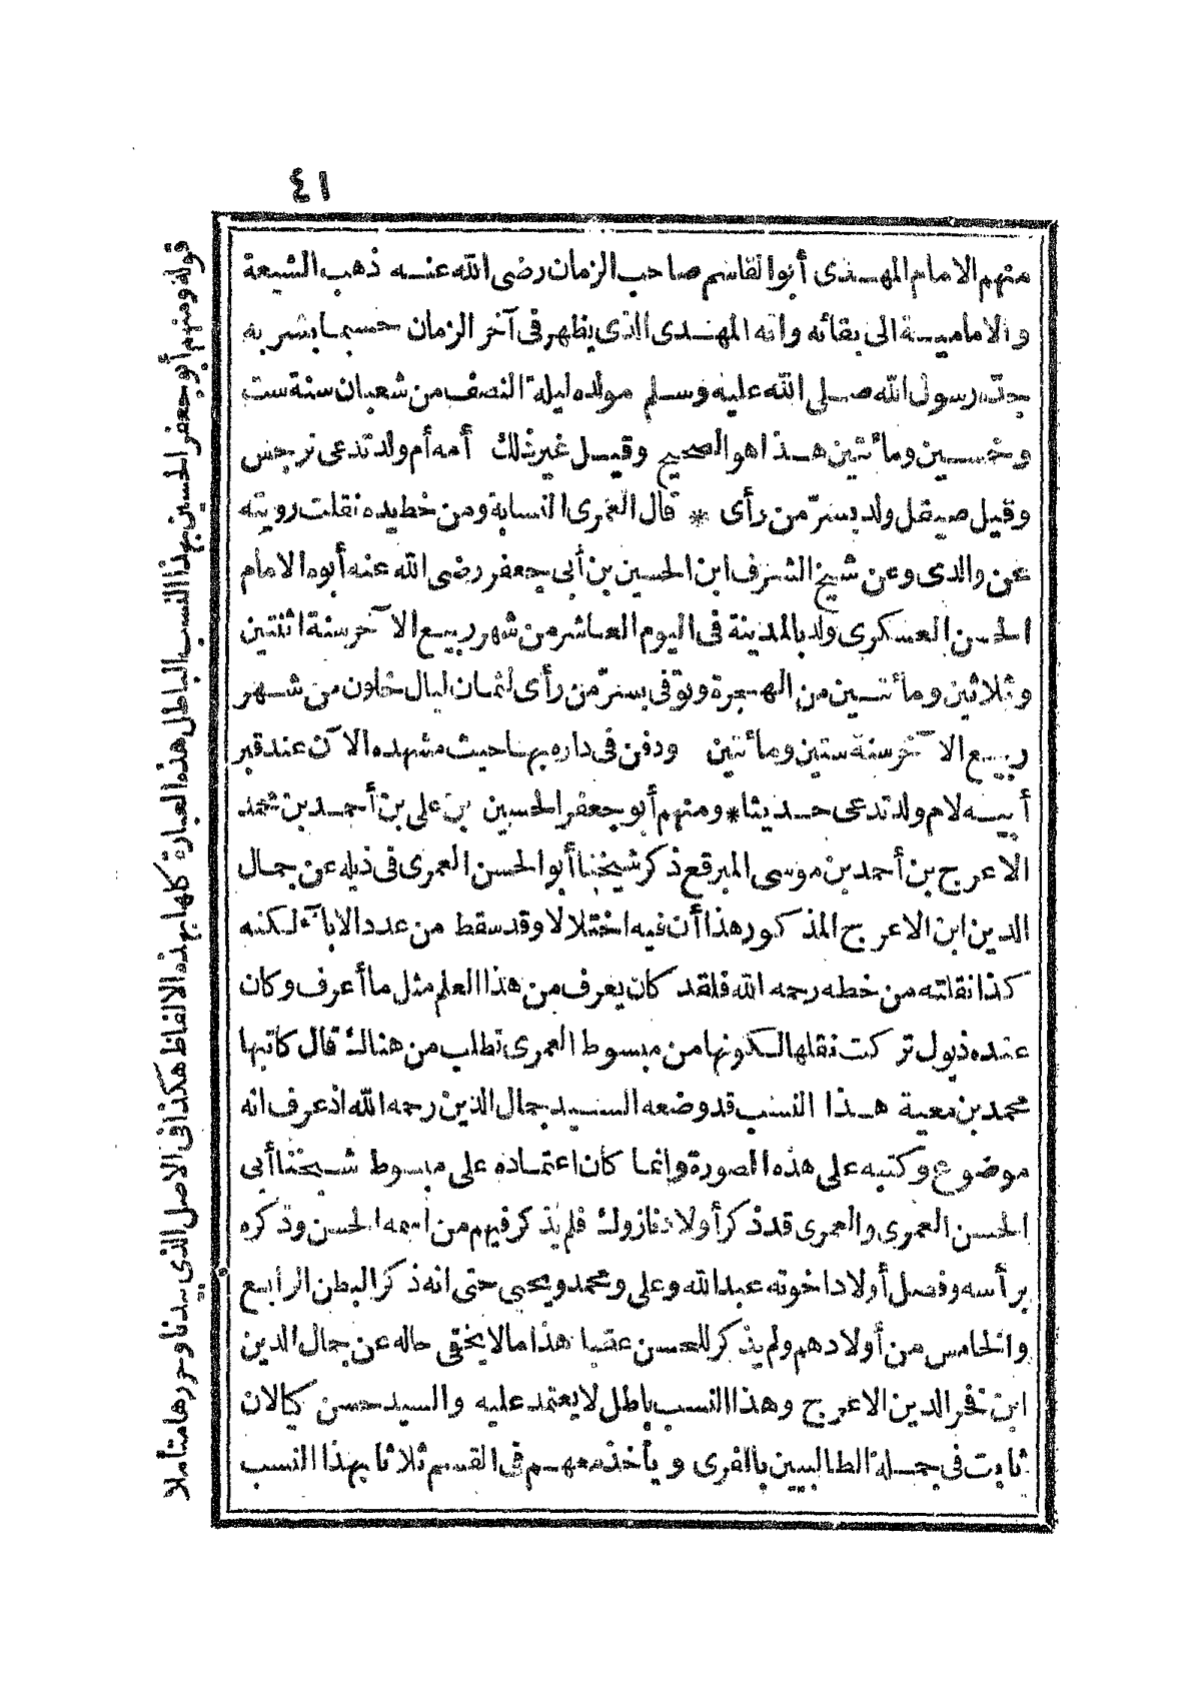 ٤١
منهم الامام المهدى أبوالقاسم صاحب الزمان رضى الله عنه ذهب الشيعة
والامامية الى بقائه وانه المهدى الذى يظهر فى آخر الزمان حسبما بشر به
جده رسول الله صلى الله عليه وسلم مولده ليلة النصف من شعبان سنة ست
وخمسين ومائتين هذا هو الصحيح وقيل غير ذلك أمه أم ولد تدعى نرجس
وقيل صيقل ولد بسر من رأى * قال العمرى النسابة ومن خط يده نقلت رويته
عن والدى وعن شيخ الشرف ابن الحسين بن أبى جعفر رضى الله عنه أبوه الامام
الحسن العسكرى ولد بالمدينة فى اليوم العاشر من شهر ربيع الآخر سنة اثنتين
وثلاثين ومائتين من الهجرة وتوفى بسر من رأى لثمان ليال خلون من شهر
ربيع الآخر سنة ستين ومائتين ودفن فى داره بها حيث مشهده الآن عند قبر
أبيه لام ولد تدعى حديثا * ومنهم أبو جعفر الحسين بن على بن أحمد بن محمد
الاعرج بن أحمد بن موسى المبرقع ذكر شيخنا أبو الحسن العمرى فى ذيله عن جمال
الدين ابن الاعرج المذكور هذا أن فيه اختلالا وقد سقط من عدد الاباء لكنه
كذا نقلته من خطه رحمه الله فلقد كان يعرف من هذا العلم مثل ما أعرف وكان
عنده ذيول تركت نقلها لكونها من مبسوط العمرى تطلب من هناك قال كاتبها
محمد بن معية هذا النسب قد وضعه السيد جمال الدين رحمه الله اذ عرف انه
موضوع وكتبه على هذه الصورة وانما كان اعتماده على مبسوط شيخنا أبى
الحسن العمرى والعمرى قد ذكر أولاد نازوك فلم يذكر فيهم من اسمه الحسن وذكره
برأسه وفصل أولاد اخوته عبد الله وعلى ومحمد ويحيى حتى انه ذكر البطن الرابع
والخامس من أولادهم ولم يذكر للحسن عقبا هذا مالا يخفى حاله عن جمال الدين
ابن فخر الدين الاعرج وهذا النسب باطل لا يعتمد عليه والسيد حسن كيا الان
ثابت فى جملة الطالبيين بالغرى ويأخذ معهم فى القسم ثلاثا بهذا النسب
قوله ومنهم أبو جعفر الحسين بهذا النسب الباطل هذه العبارة كلها بهذه الالفاظ هكذا فى الاصل الذى بيدنا وحررها متأملا